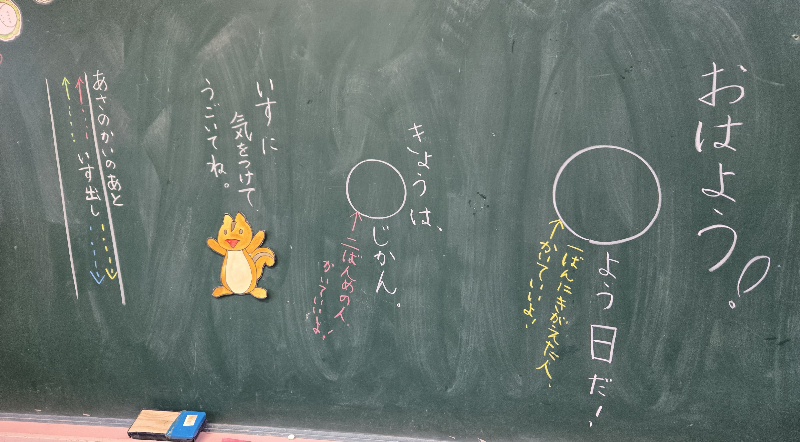 おはよう!。
◯よう日だ!
一ばんにきがえた人、
かいていいよ!
きょうは、
◯じかん。
二ばんめの人、
かいていいよ!
いすに
気をつけて
うごいてね。
あさのかいのあと
いす出し